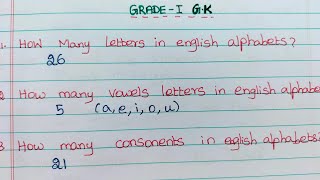 GRADE-I G.K
1. How Many letters in english alphabets?
26
2 How many vowels letters in english alphabe
5 (a,e,i,o,u)
3 How many consonents in english alphabets
21